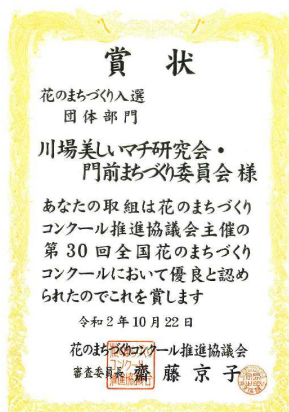 賞状
花のまちづくり入選
団体部門
川場美しいマチ研究会・
門前まちづくり委員会様
あなたの取組は花のまちづくり
コンクール推進協議会主催の
第30回全国花のまちづくり
コンクールにおいて優良と認め
られたのでこれを賞します
令和2年10月22日
花のまちづくりコンクール推進協議会
審査委員長 齋藤京子